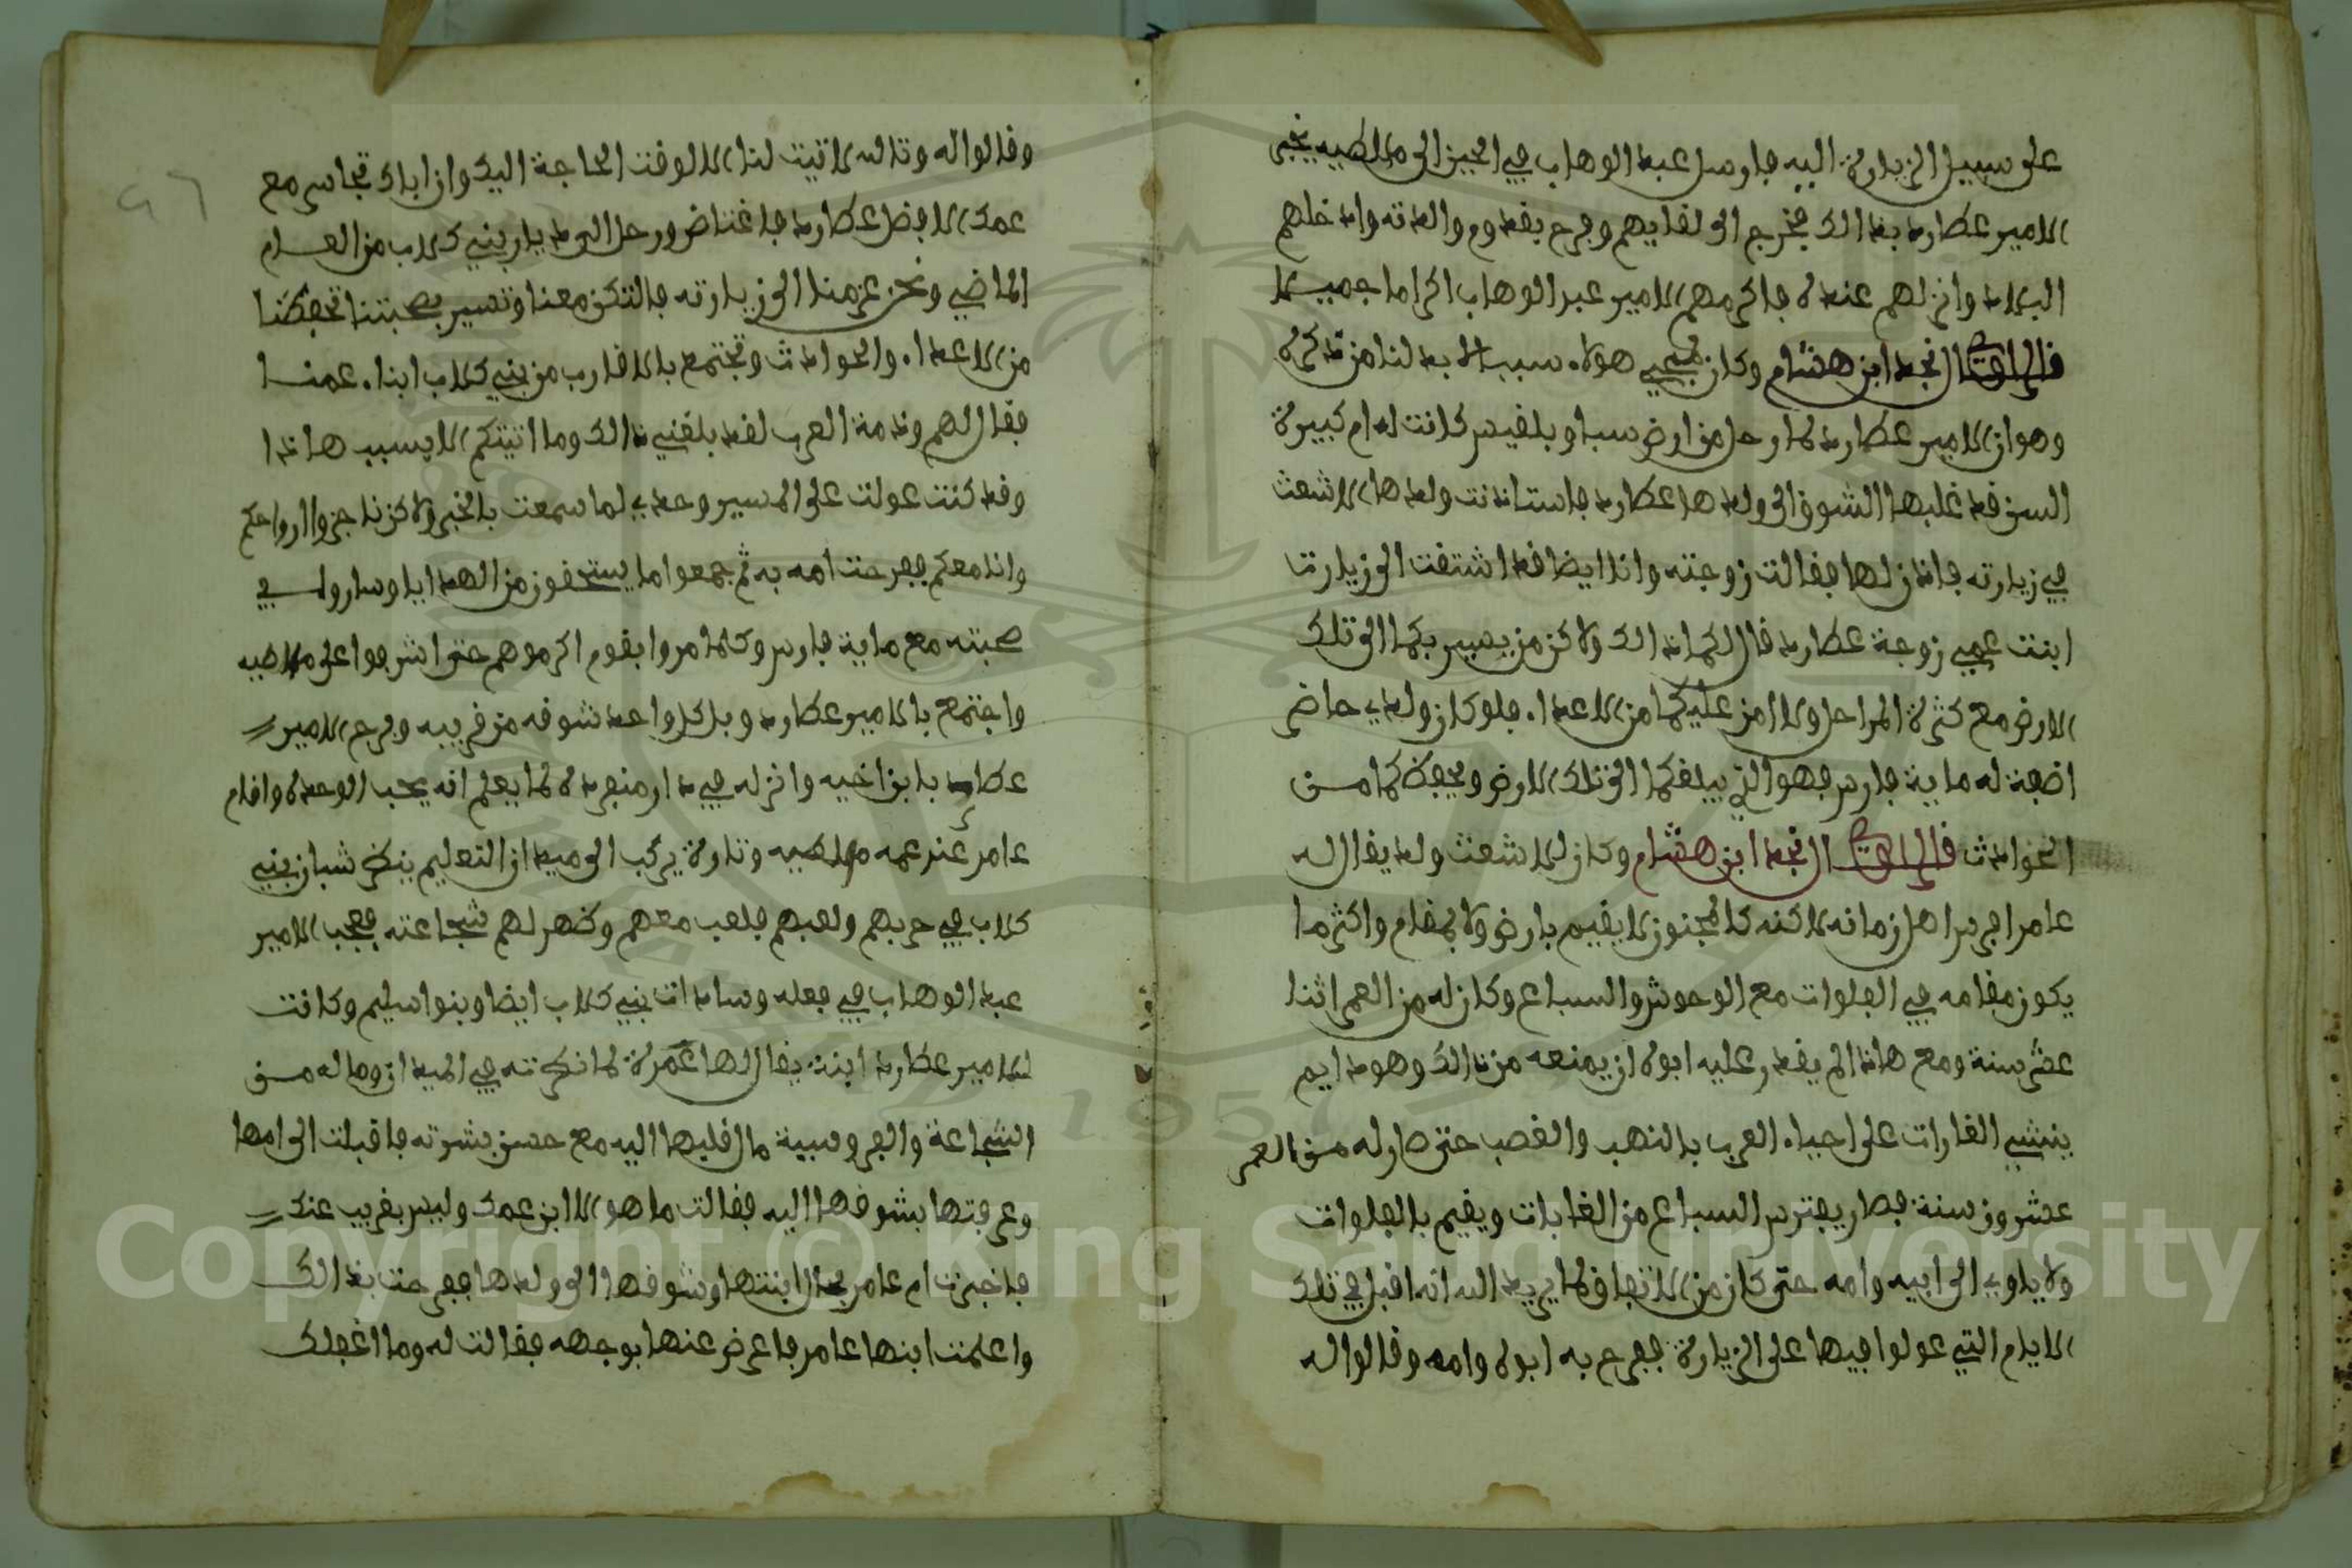 على سبيل الزيارة اليه فارسل عبد الوهاب في الحين الى ملطيه يخبر
الامير عطارد بذالك فخرج الى لقايهم وفرح بقدوم والدته وادخلهم
البلاد وانزلهم عنده فاكرمهم الامير عبد الوهاب اكراما جميلا
قال الراوي النجد ابن هشام وكان لمجيي هولاء سبب لا بد لنا من ذكره
وهو ان الامير عطارد لما رحل من ارض سبا وبلقيس كانت له ام كبيرة
السن قد غلبها الشوق الى ولدها عطارد فاستاذنت ولدها الاشعث
في زيارته فاذن لها فقالت زوجته وانا ايضا قد اشتقت الى زيارت
ابنت عمي زوجة عطارد قال لكما ذالك ولاكن من يصير بكما الى تلك
الارض مع كثرة المراحل ولا امن عليكما من الاعداء فلو كان ولدي حاضر
اضفت له ماية فارس فهو الذي يبلغكما الى تلك الارض ويحفظكما من
الحوادث قال الراوي النجد ابن هشام وكان للاشعث ولد يقال له
عامر افرس اهل زمانه لاكنه كالمجنون لا يقيم بارض ولا بمقام واكثر ما
يكون مقامه في الفلوات مع الوحوش والسباع وكان له من العمر اثنا
عشر سنة ومع هاذا لم يقدر عليه ابوه ان يمنعه من ذالك وهو دايم
ينشي الغارات على احياء العرب بالنهب والغصب حتى صار له من العمر
عشرون سنة فصار يفترس السباع من الغابات ويقيم بالفلوات
ولا ياوي الى ابيه وامه حتى كان من الاتفاق لما يريد الله انه اقبل في تلك
الايام التي عولوا فيها على الزيارة ففرح به ابوه وامه وقالوا له
وقالوا له وتالله لاتيت لنا الا لوقت الحاجة اليك وان اباك تجاسر مع
عمك الافضل عطارد فاغتاض ورحل الى ديار بني كلاب من العام
الماضي ونحن عزمنا الى زيارته فالتكن معنا وتسير بصحبتنا تحفظنا
من الاعداء والحوادث وتجتمع بالاقارب من بني كلاب ابناء عمنا
فقال لهم وذمة العرب لقد بلغني ذالك وما اتيتكم الا بسبب هاذا
وقد كنت عولت على المسير وحدي لما سمعت بالخبر ولاكن ناجزوا ارواحكم
وانا معكم ففرحت امه به ثم جمعوا ما يستحقون من الهدايا وساروا في
صحبته مع ماية فارس وكلما مروا بقوم اكرموهم حتى اشرفوا على ملاطيه
واجتمع بالامير عطارد وبل كل واحد شوقه من قريبه وفرح الامير
عطارد بابن اخيه وانزله في دار منفردة لما يعلم انه يحب الوحدة واقام
عامر عند عمه ملاطيه وتارة يركب الى ميدان التعليم ينظر شبان بني
كلاب في حربهم ولعبهم فلعب معهم وظهر لهم شجاعته فعجب الامير
عبد الوهاب في فعله وسادات بني كلاب ايضا وبنوا سليم وكانت
للامير عطارد ابنة يقال لها عمرة لما نظرته في الميدان وما له من
الشجاعة والفروسية مال قلبها اليه مع حسن بشرته فاقبلت الى امها
وعرفتها بشوقها اليه فقالت ما هو الا ابن عمك وليس بغريب عنك
فاخبرت ام عامر بحال ابنتها وشوقها الى ولدها ففرحت بذالك
واعلمت ابنها عامر فاعرض عنها بوجهه فقالت له وما اغفلك
Copyright © King Saud University
1957